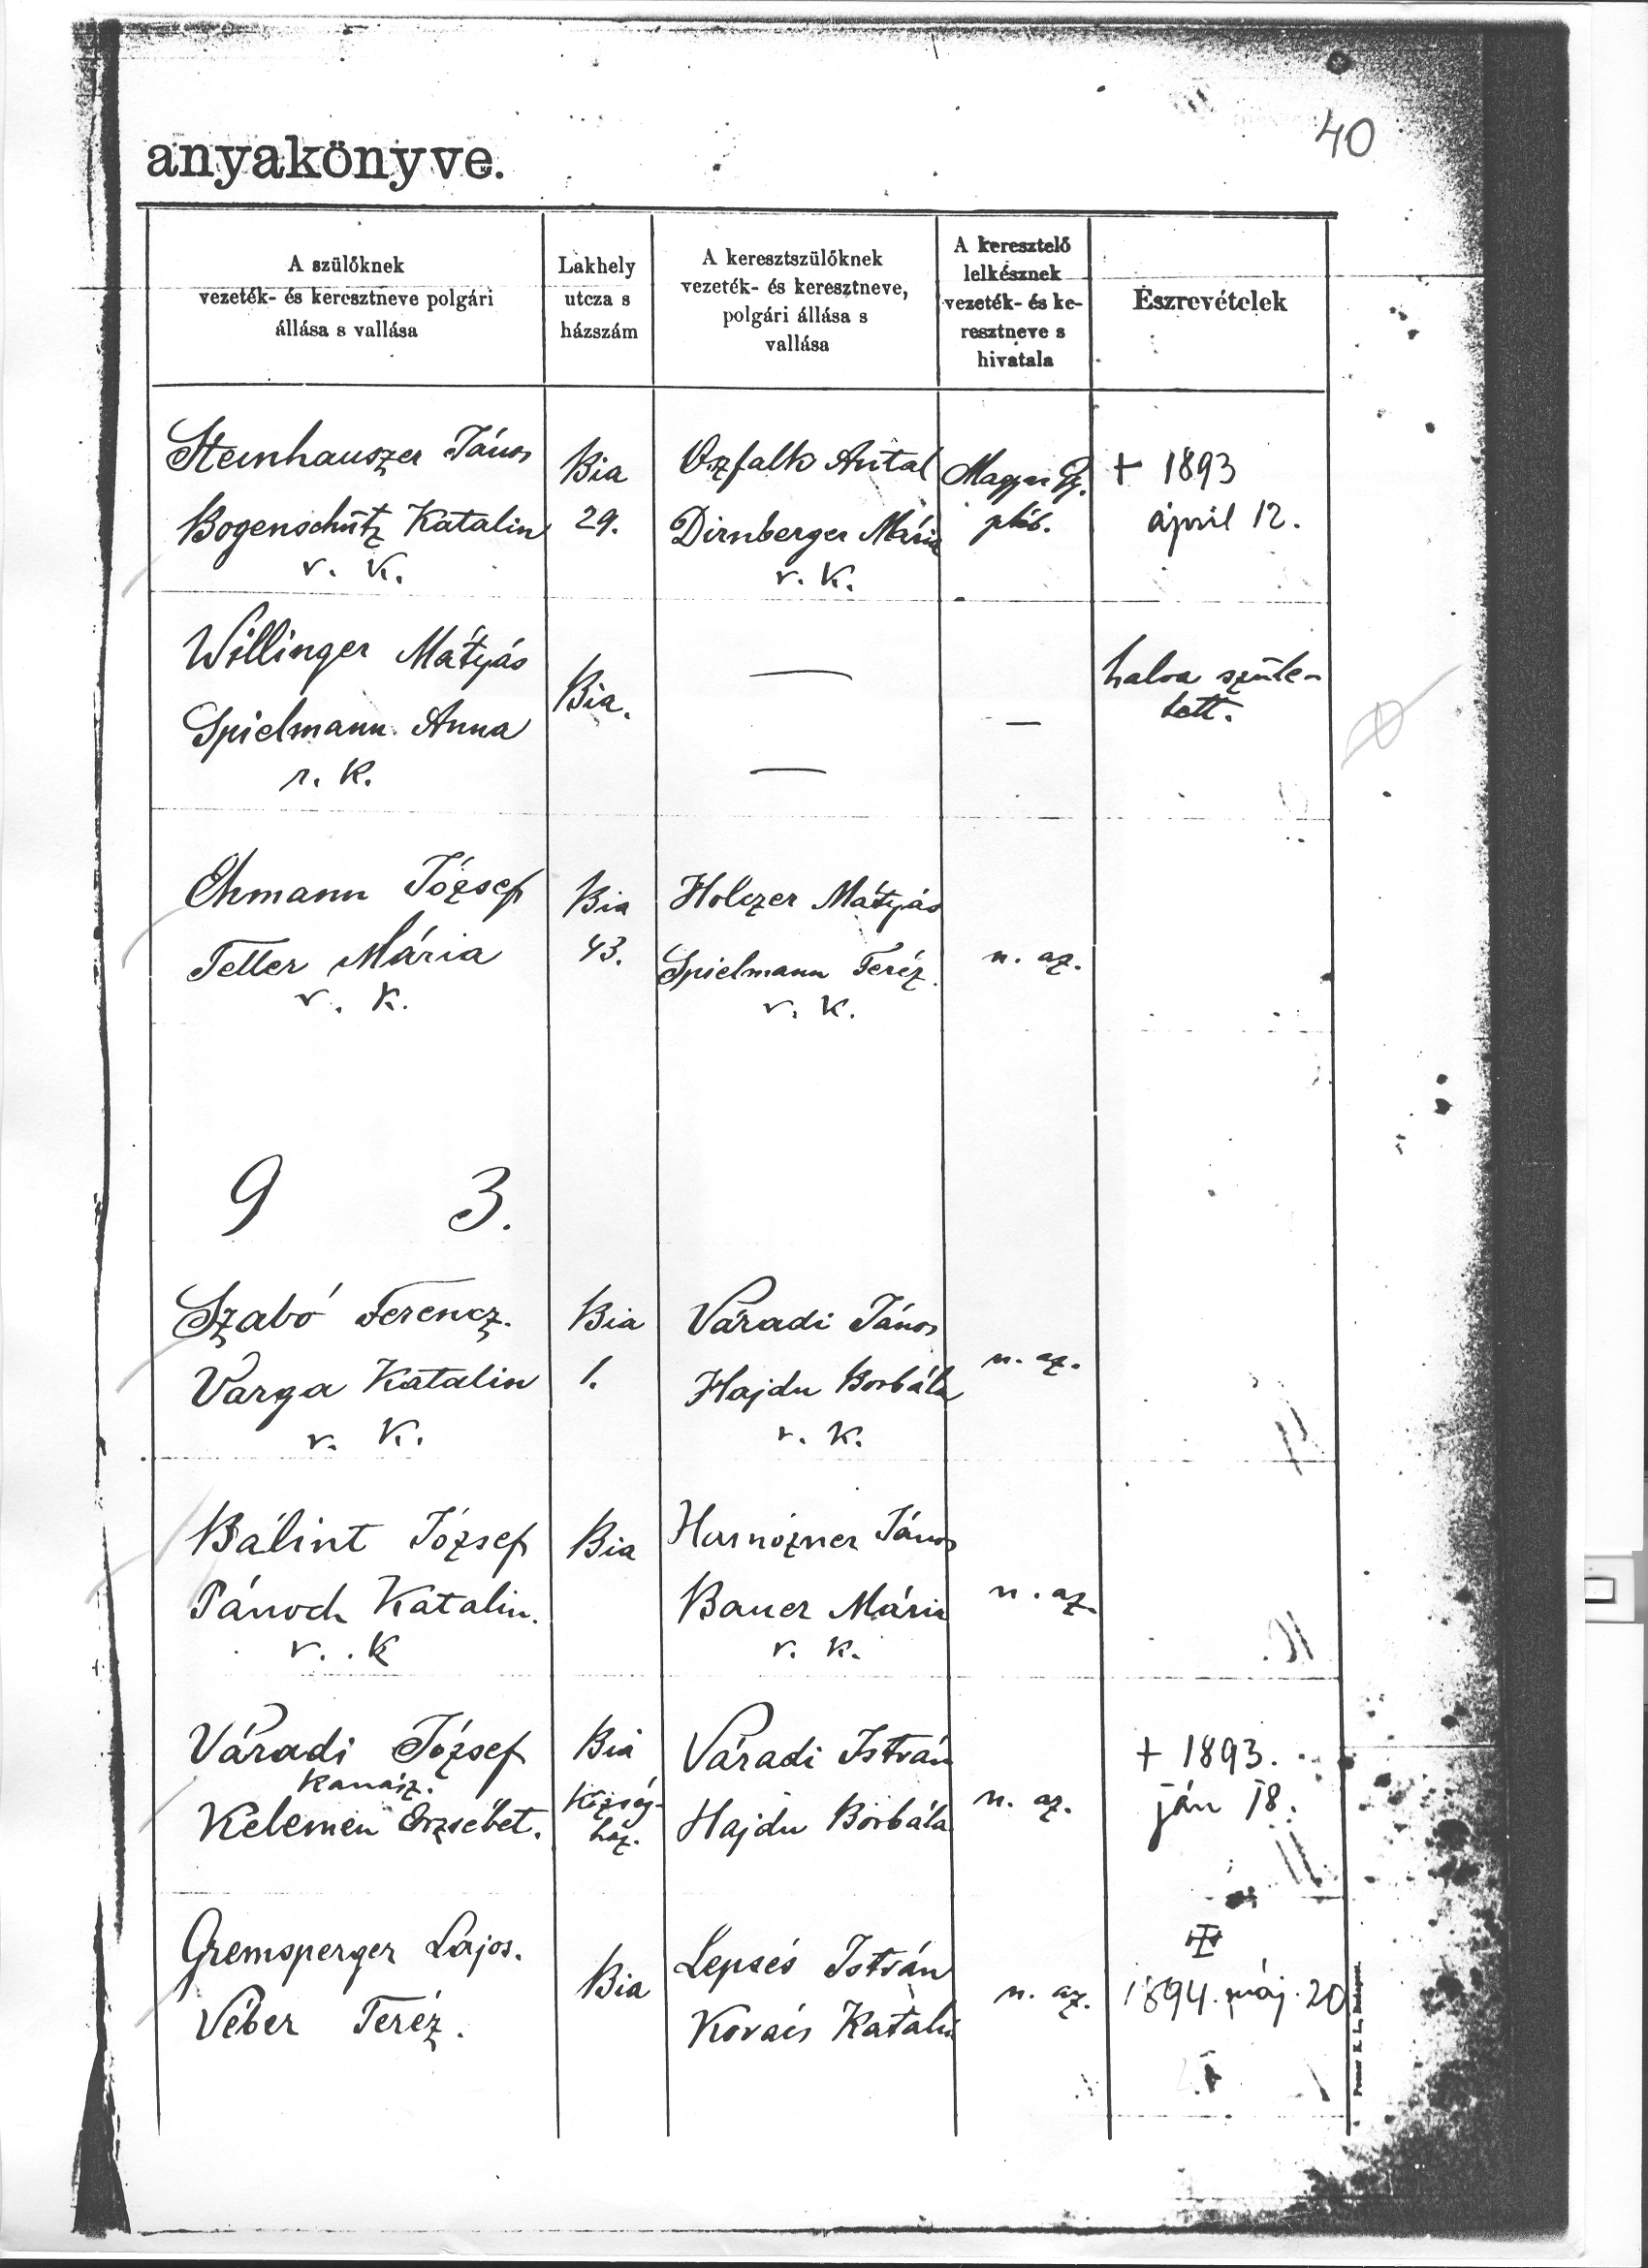 40
anyakönyve.
A szülőknek
vezeték- és keresztneve polgári
állása s vallása
Lakhely
utcza s
házszám
A keresztszülőknek
vezeték- és keresztneve,
polgári állása s
vallása
A keresztelő
lelkésznek
vezeték- és ke-
resztneve s
hivatala
Észrevételek
Steinhauszer János
Bogenschütz Katalin
r. k.
Bia
29.
Ozfalk Antal
Dirnberger Mária
r. k.
Magyar Gy.
pléb.
+ 1893
april 12.
Willinger Mátyás
Spielmann Anna
r. k.
Bia.
—
—
—
halva szüle-
tett.
Ehmann József
Teller Mária
r. k.
Bia
43.
Holczer Mátyás
Spielmann Teréz.
r. k.
u. az.
9 3.
Szabó Ferencz.
Varga Katalin
r. k.
Bia
1.
Váradi János
Hajdu Borbála
r. k.
u. az.
Bálint József
Pánoch Katalin.
r. k
Bia
Harnózner János
Bauer Mária
r. k.
u. az.
Váradi József
kanász.
Kelemen Erzsébet.
Bia
Község-
ház.
Váradi István
Hajdu Borbála
u. az.
+ 1893.
ján 18.
Gremsperger Lajos.
Véber Teréz.
Bia
Lepsés István
Kovács Katalin
u. az.
1894. máj. 20